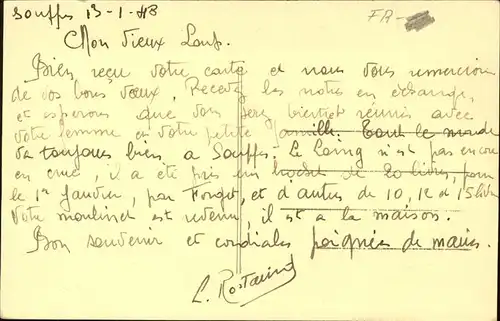 Souppes 13-1-48
FR-
Mon Vieux Loup.
Bien reçu votre carte et nous vous remercions
de vos bons vœux, Recevez les notres en échange,
et esperons que vous serez bientot réunis avec
votre femme et votre petite famille. Tout le monde
va toujours bien, a Souppes. Le Loing n'est pas encore
en crue, il a eté pris un brochet de 20 livres, pour
le 1er Janvier, par Forgot, et d'autres de 10, 12 et 15 livres
Votre moulinet est revenu, il est a la maison.
Bon souvenir et cordiales poignées de mains.
L. Rostaing